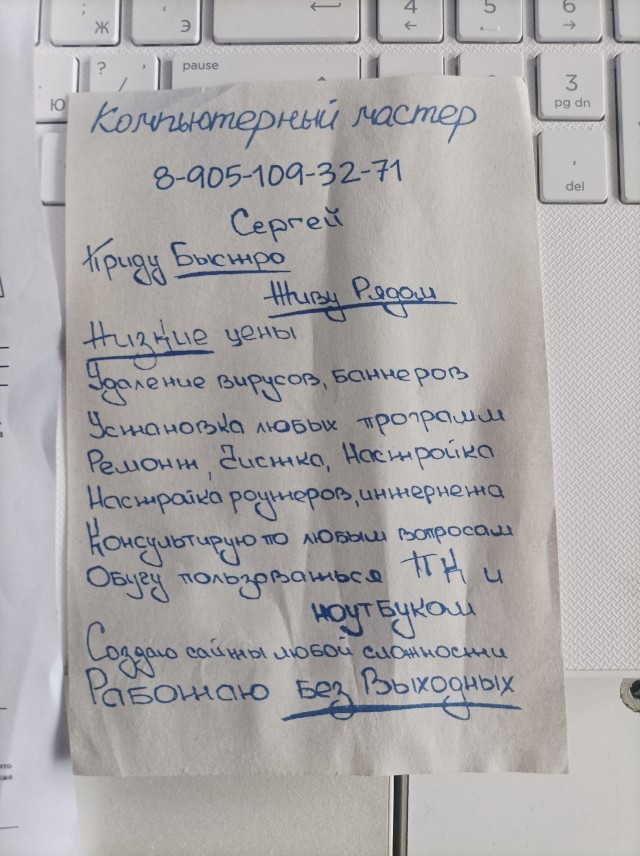 Ж
Э
4
5
6
?
,
/
pause
3
pg dn
Ю
,
del
Компьютерный мастер
8-905-109-32-71
Сергей
Приду Быстро
Живу Рядом
Низкие цены
Удаление вирусов, баннеров
Установка любых программ
Ремонт, Чистка, Настройка
Настройка роутеров, интернета
Консультирую по любым вопросам
Обучу пользоваться ПК и
ноутбуком
Создаю сайты любой сложности
Работаю Без Выходных